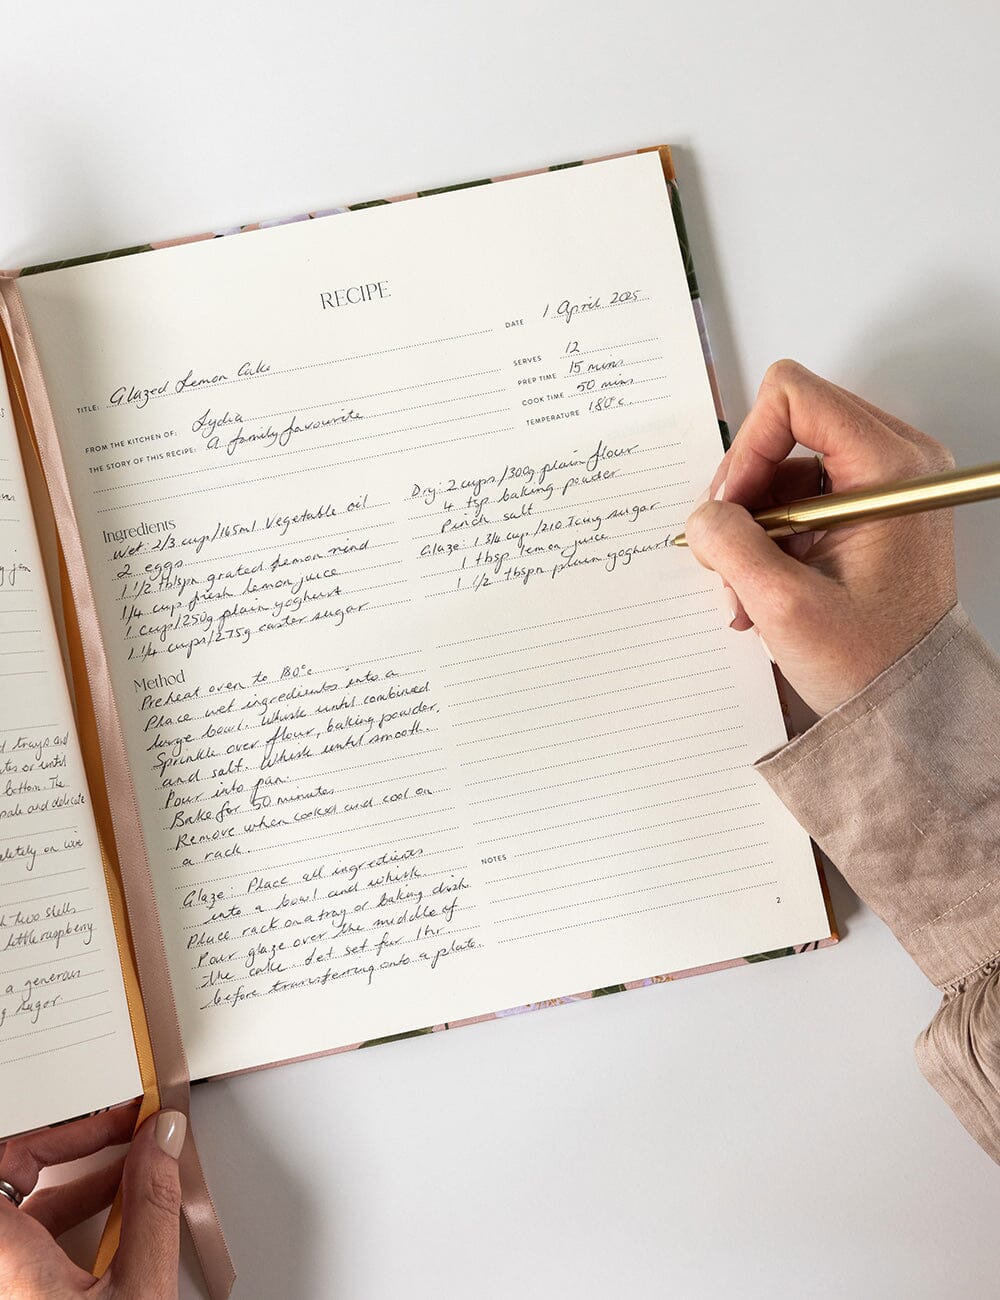 RECIPE
DATE 1 April 2025
TITLE: Glazed Lemon Cake
SERVES 12
PREP TIME 15 mins
COOK TIME 50 mins
TEMPERATURE 180°c.
FROM THE KITCHEN OF: Lydia
THE STORY OF THIS RECIPE: A family favourite
Ingredients
Wet: 2/3 cup/165ml Vegetable oil
2 eggs
1 1/2 tblspn grated lemon rind
1/4 cup fresh lemon juice
1 cup/250g plain yoghurt
1 1/4 cups/275g caster sugar
Dry: 2 cups/300g plain flour
4 tsp baking powder
Pinch salt
Glaze: 1 3/4 cup/210 Icing sugar
1 tbsp lemon juice
1 1/2 tbspn plain yoghurt
Method
Preheat oven to 180°c
Place wet ingredients into a
large bowl. Whisk until combined
Sprinkle over flour, baking powder,
and salt. Whisk until smooth.
Pour into pan.
Bake for 50 minutes
Remove when cooked and cool on
a rack.
Glaze: Place all ingredients
into a bowl and whisk.
Place rack on a tray or baking dish
Pour glaze over the middle of
the cake. Let set for 1hr.
before transferring onto a plate.
NOTES
2
trays and
or until
bottom. The
pale and delicate
on wire
two shells
little raspberry
a generous
sugar